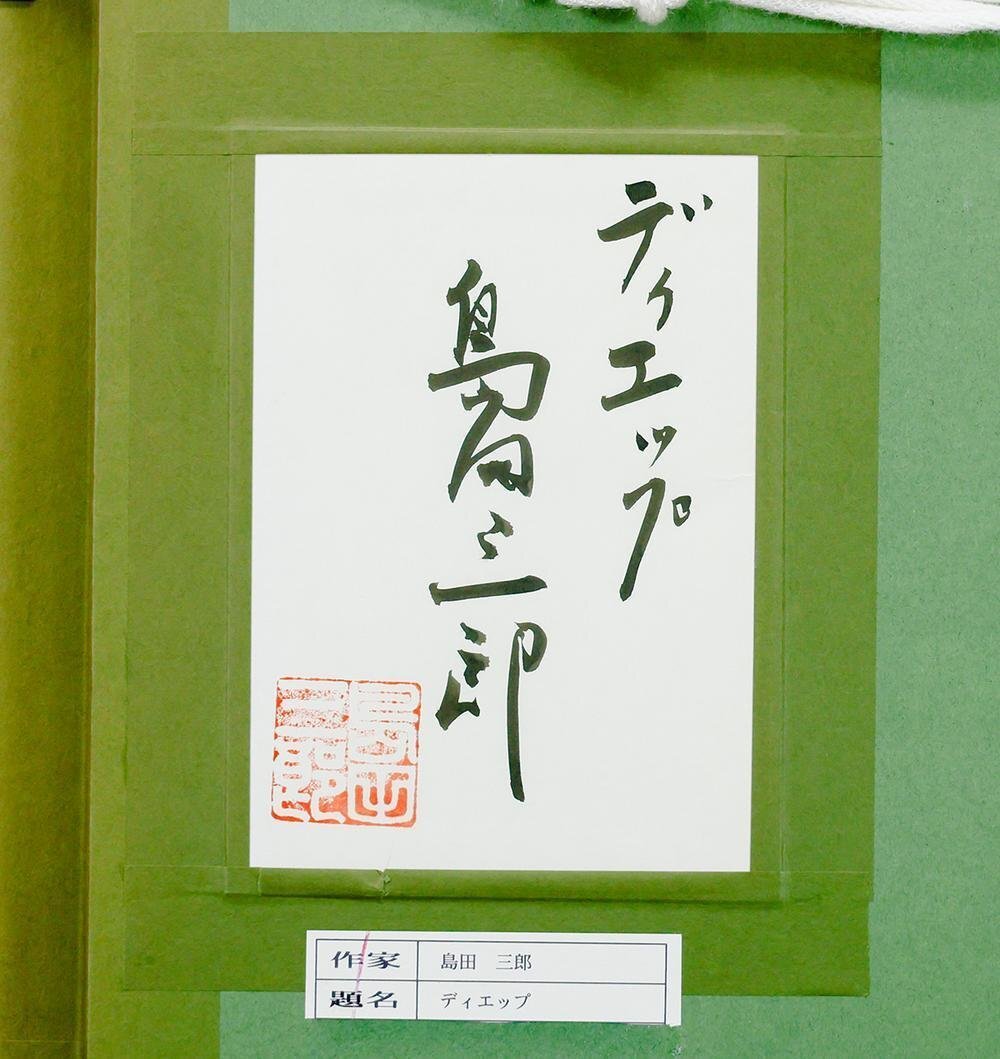 ディエップ
島田三郎
作家 島田 三郎
題名 ディエップ